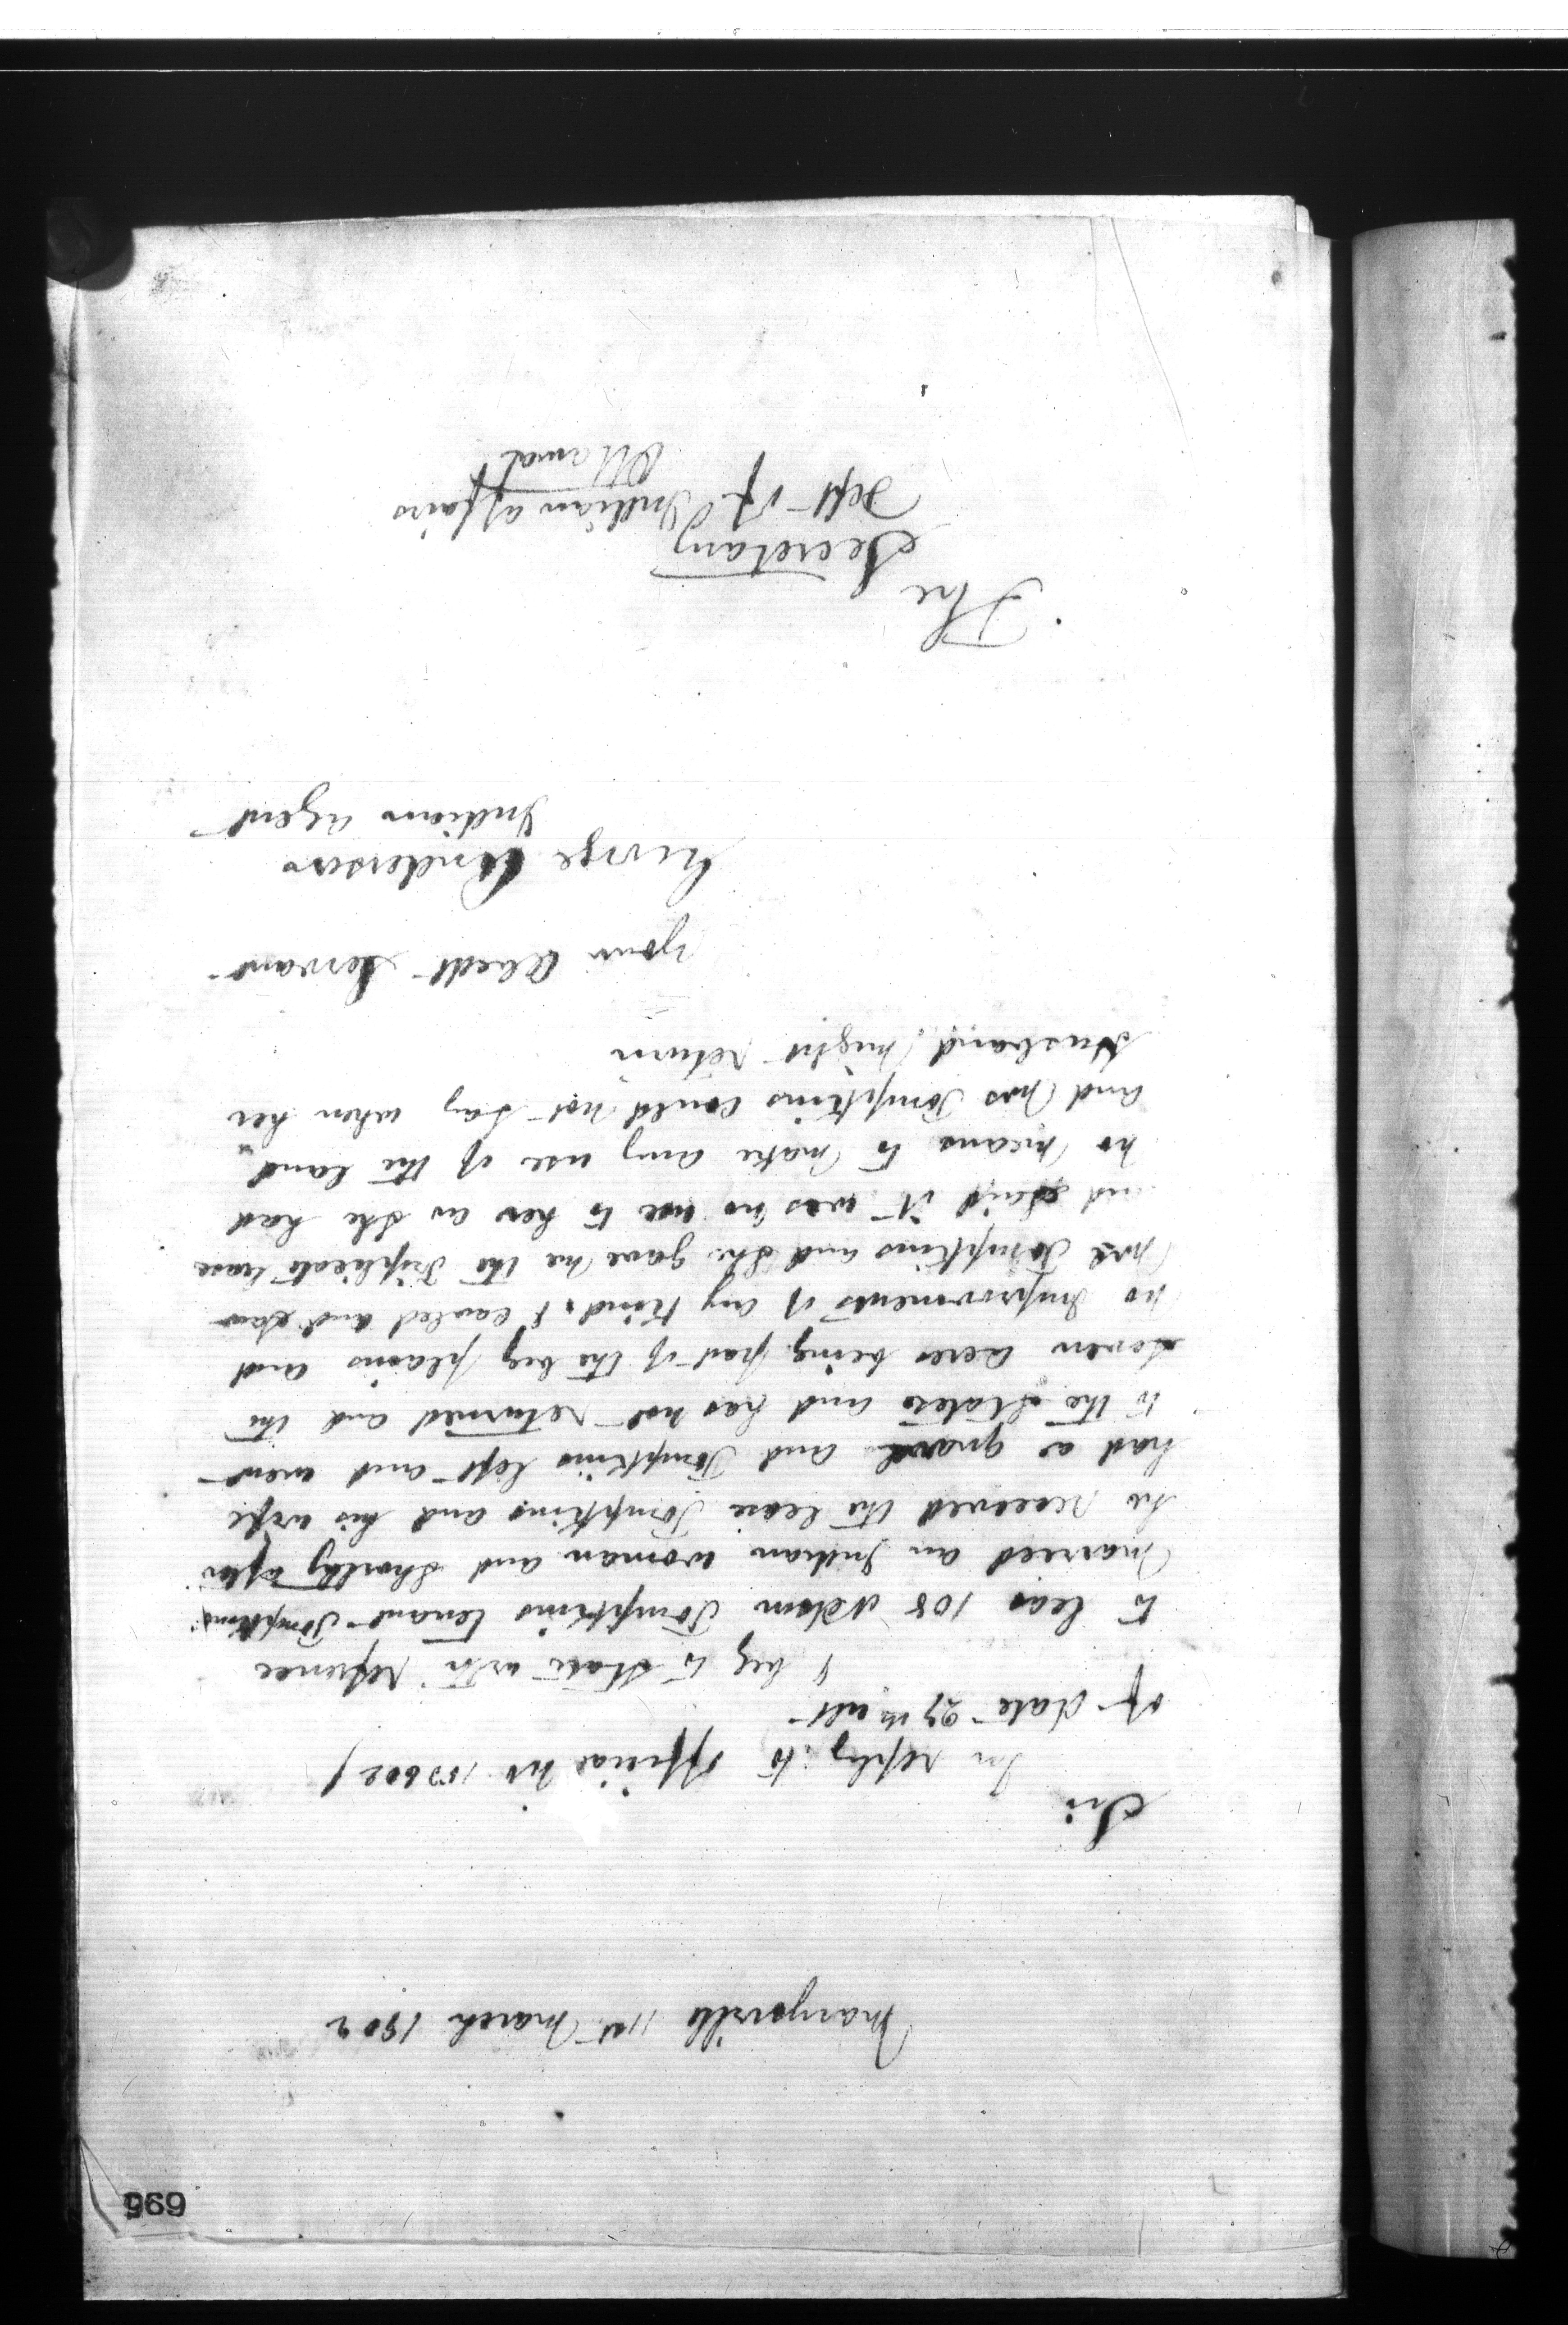 695
Marysville 11th March 1902
Sir
In reply to Official No 153602/
of date 27th ult
I beg to state with refrence
to leas 108 Adam Tompkins tenant Tompkins
married an Indian woman and shortly after
he received the lease Tompkins and his wife
had a quarel and Tompkins left and went
to the States and has not returned and the
seven acres being part of the big plains and
no Improvments of any kind, I called and saw
Mrs Tompkins and she gave me the Triplicate lease
and said it was no use to her as she had
no means to make any use of the land
and Mrs Tompkins could not say when her
Husband might return
your Obedt Servant
George Anderson
Indian agent
The
Secretary
Dept of Indian affairs
Ottawa